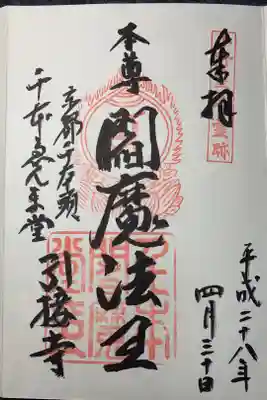 奉拝
霊跡
平成二十八年
四月三十日
本尊
閻魔法王
京都千本頭
千本ゑんま堂
引接寺